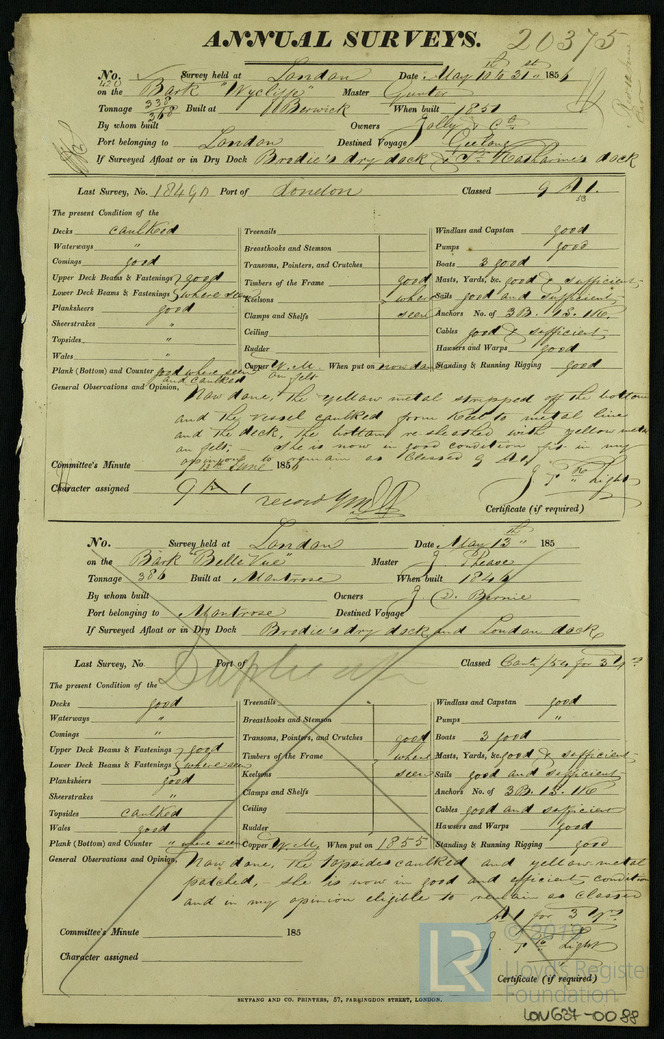 ANNUAL SURVEYS. 20375
No. 420 Survey held at London Date May 10th & 31st 1856
on the Bark "Wycliffe" Master Gunter
Tonnage 338 368 Built at Berwick When built 1851
By whom built Owners Jolly & Co.
Port belonging to London Destined Voyage Geelong
If Surveyed Afloat or in Dry Dock Brodie's dry dock & St. Katharine's dock
Last Survey, No. 18490 Port of London Classed 9 A 1. 53
The present Condition of the
Decks caulked Treenails Windlass and Capstan good
Waterways " Breasthooks and Stemson Pumps good
Comings good Transoms, Pointers, and Crutches Boats 3 good
Upper Deck Beams & Fastenings good Timbers of the Frame good Masts, Yards, &c. good & sufficient
Lower Deck Beams & Fastenings where seen Keelsons where Sails good and sufficient
Planksheers good Clamps and Shelfs seen Anchors No. of 3B. 1S. 1K.
Sheerstrakes " Ceiling Cables good & sufficient
Topsides " Rudder Hawsers and Warps good
Wales " Copper Y.M. on felt When put on now done Standing & Running Rigging good
Plank (Bottom) and Counter good where seen and caulked
General Observations and Opinion, Now done, the yellow metal stripped off the bottom
and the vessel caulked from keel to metal line
and the deck, the bottom resheathed with yellow metal
on felt, – she is now in good condition fit in my
opinion to remain as Classed 9 A 1
Committee's Minute 13th June 1856
Character assigned 9 A 1 record YM J. P. Light
Certificate (if required)
No. Survey held at London Date May 13th 185
on the Bark "Belle Vue" Master J
Tonnage 386 Built at Montrose When built 1846
By whom built Owners J. D. Birnie
Port belonging to Montrose Destined Voyage
If Surveyed Afloat or in Dry Dock Brodie's dry dock and London dock
Last Survey, No. Port of Classed Cont/54 for 3 Yrs
Duplicate
The present Condition of the
Decks good Treenails Windlass and Capstan good
Waterways " Breasthooks and Stemson Pumps "
Comings " Transoms, Pointers, and Crutches good Boats 3 good
Upper Deck Beams & Fastenings good Timbers of the Frame where Masts, Yards, &c. good & sufficient
Lower Deck Beams & Fastenings where seen Keelsons seen Sails good and sufficient
Planksheers good Clamps and Shelfs Anchors No. of 3B. 1S. 1K
Sheerstrakes " Ceiling Cables good and sufficient
Topsides caulked Rudder Hawsers and Warps good
Wales good Copper Y.M. When put on 1855 Standing & Running Rigging good
Plank (Bottom) and Counter " where seen
General Observations and Opinion, Now done, the topsides caulked and yellow metal
patched, – she is now in good and efficient condition
and in my opinion eligible to remain as classed
A 1 for 3 Yrs
Committee's Minute 185
J. P. Light
Character assigned
Certificate (if required)
SEYFANG AND CO. PRINTERS, 57, FARRINGDON STREET, LONDON.
© 2019
LR Lloyd's Register
Foundation
LON637-0088